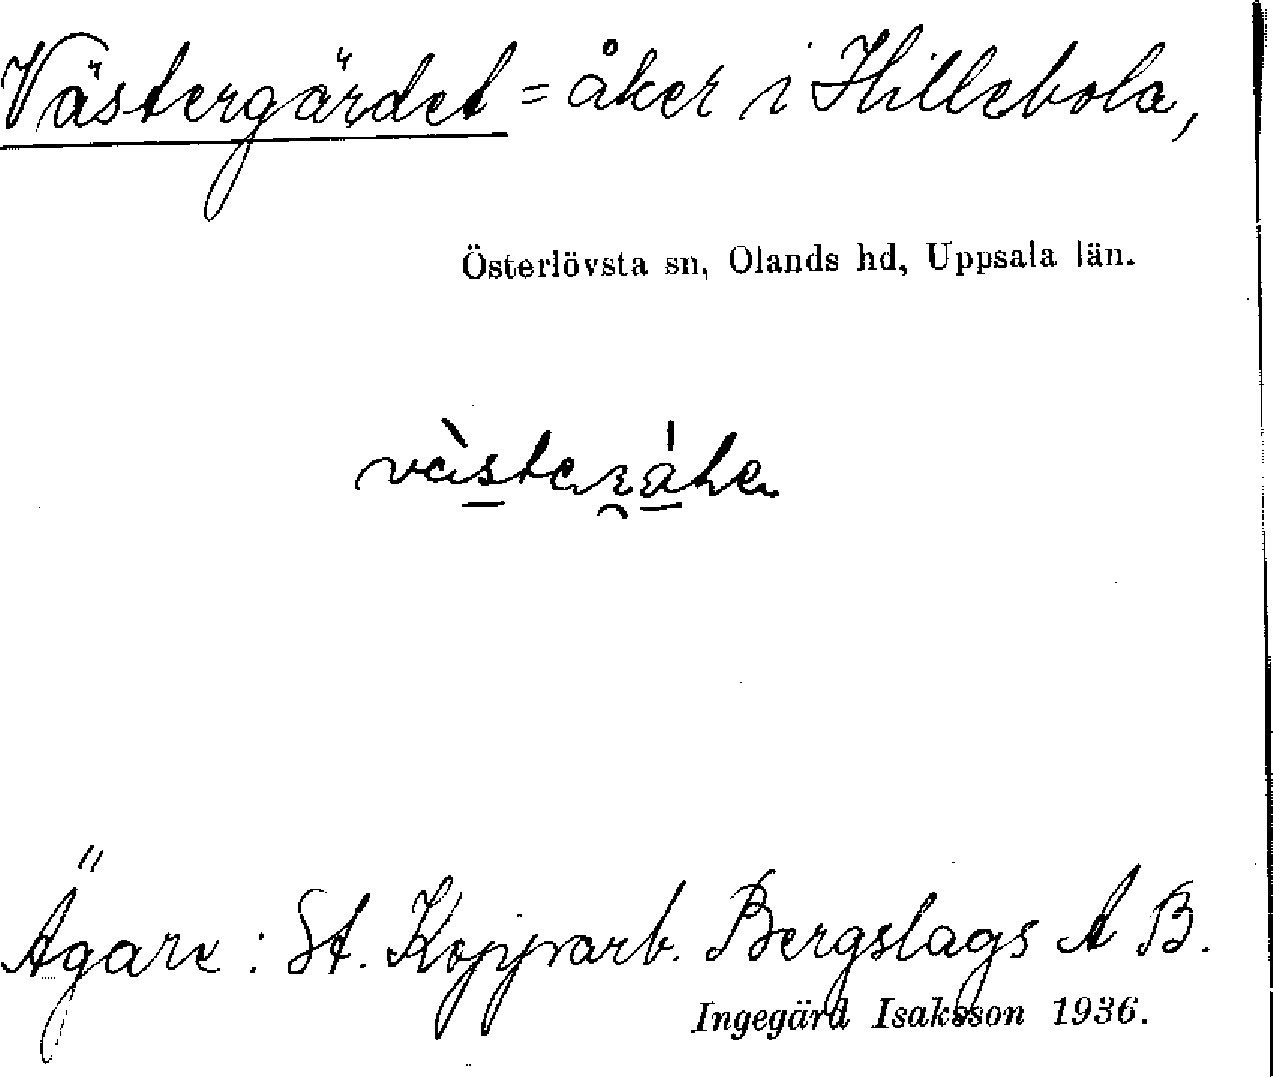 Västergärdet = åker i Hillebola,
Österlövsta sn, Olands hd, Uppsala län.
Ägare: St. Kopparb. Bergslags A B.
Ingegärd Isaksson 1936.